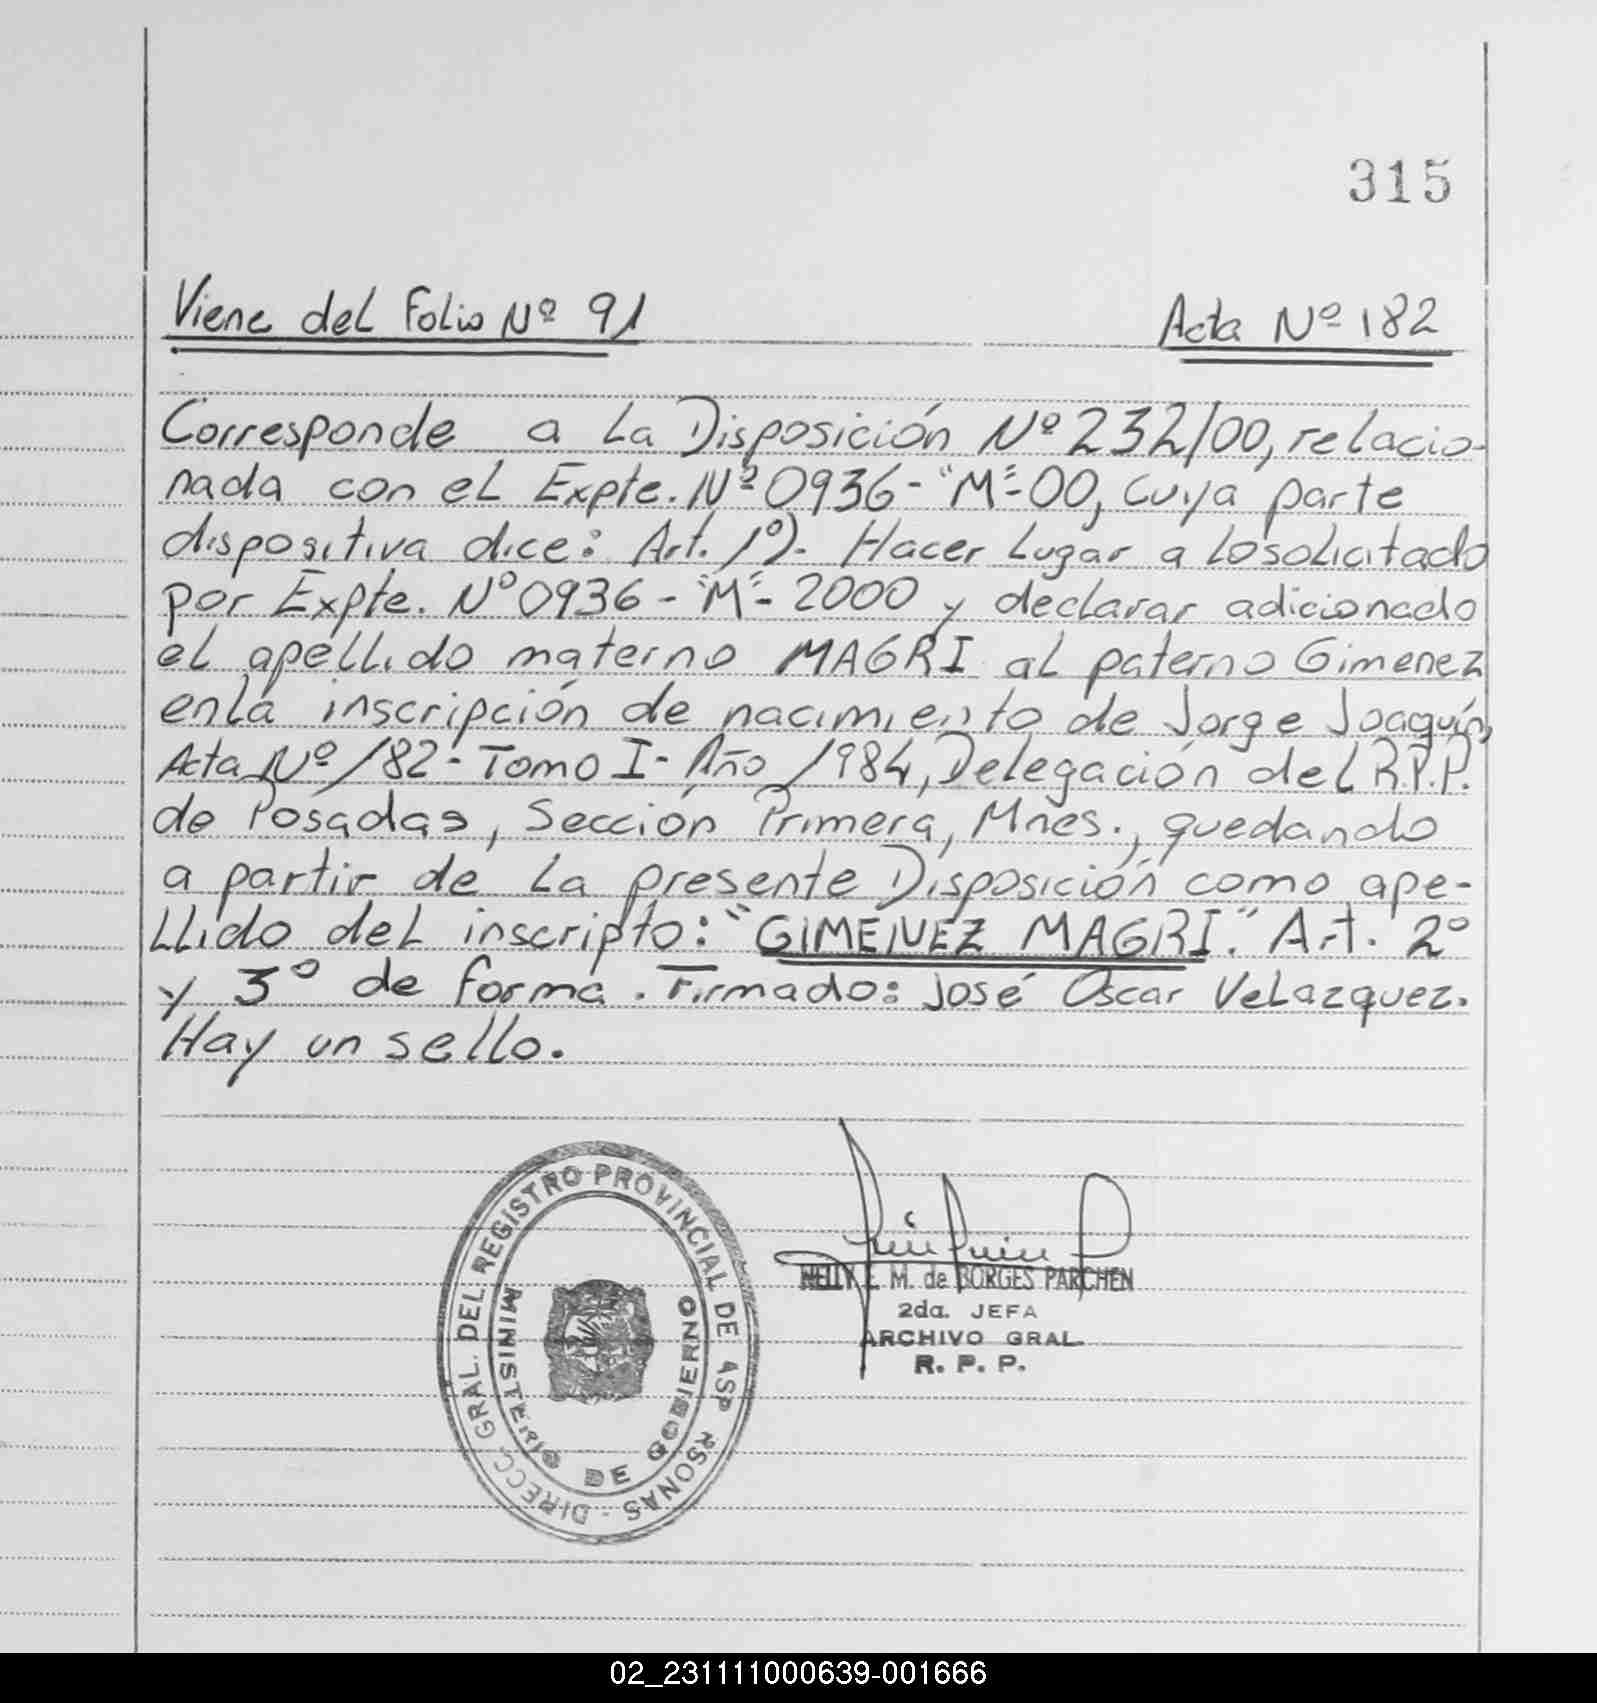 315
Viene del Folio Nº 91 Acta Nº 182
Corresponde a La Disposición Nº 232/00, relacio-
nada con el Expte. Nº 0936-"M"-00, cuya parte
dispositiva dice: Art. 1º). Hacer Lugar a lo solicitado
por Expte. Nº 0936-"M"- 2000 y declarar adicionado
el apellido materno MAGRI al paterno Gimenez
en la inscripción de nacimiento de Jorge Joaquín,
Acta Nº 182- Tomo I- Año 1984, Delegación del R.P.P.
de Posadas, Sección Primera, Mnes., quedando
a partir de La presente Disposición como ape-
llido del inscripto: "GIMENEZ MAGRI." Art. 2º
y 3º de forma. Firmado: José Oscar Velazquez.
Hay un sello.
DIRECC. GRAL. DEL REGISTRO PROVINCIAL DE RSONAS -
MINISTERIO DE GOBIERNO
NELLY E. M. de BORGES PARCHEN
2da. JEFA
ARCHIVO GRAL.
R. P. P.
02_231111000639-001666